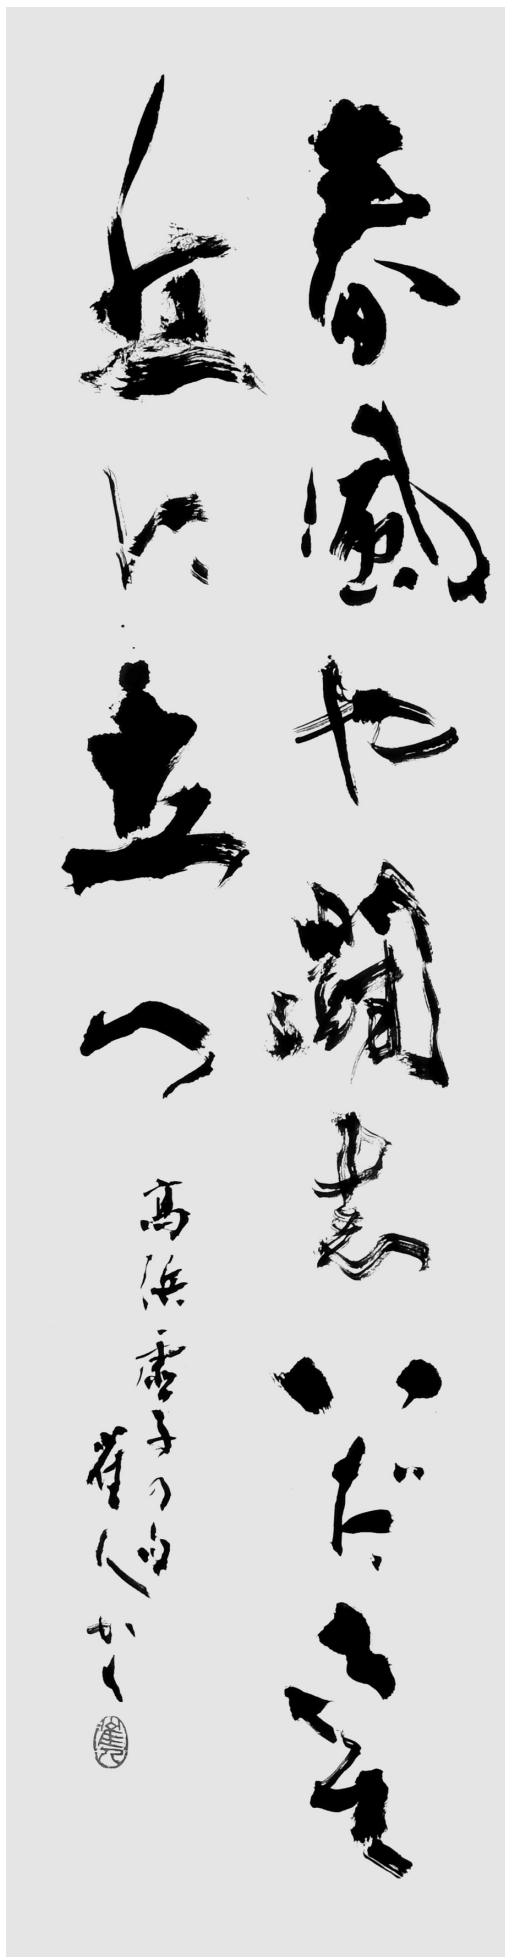 春風や闘志いだきて
丘に立つ
高浜虚子の句
雀人かく